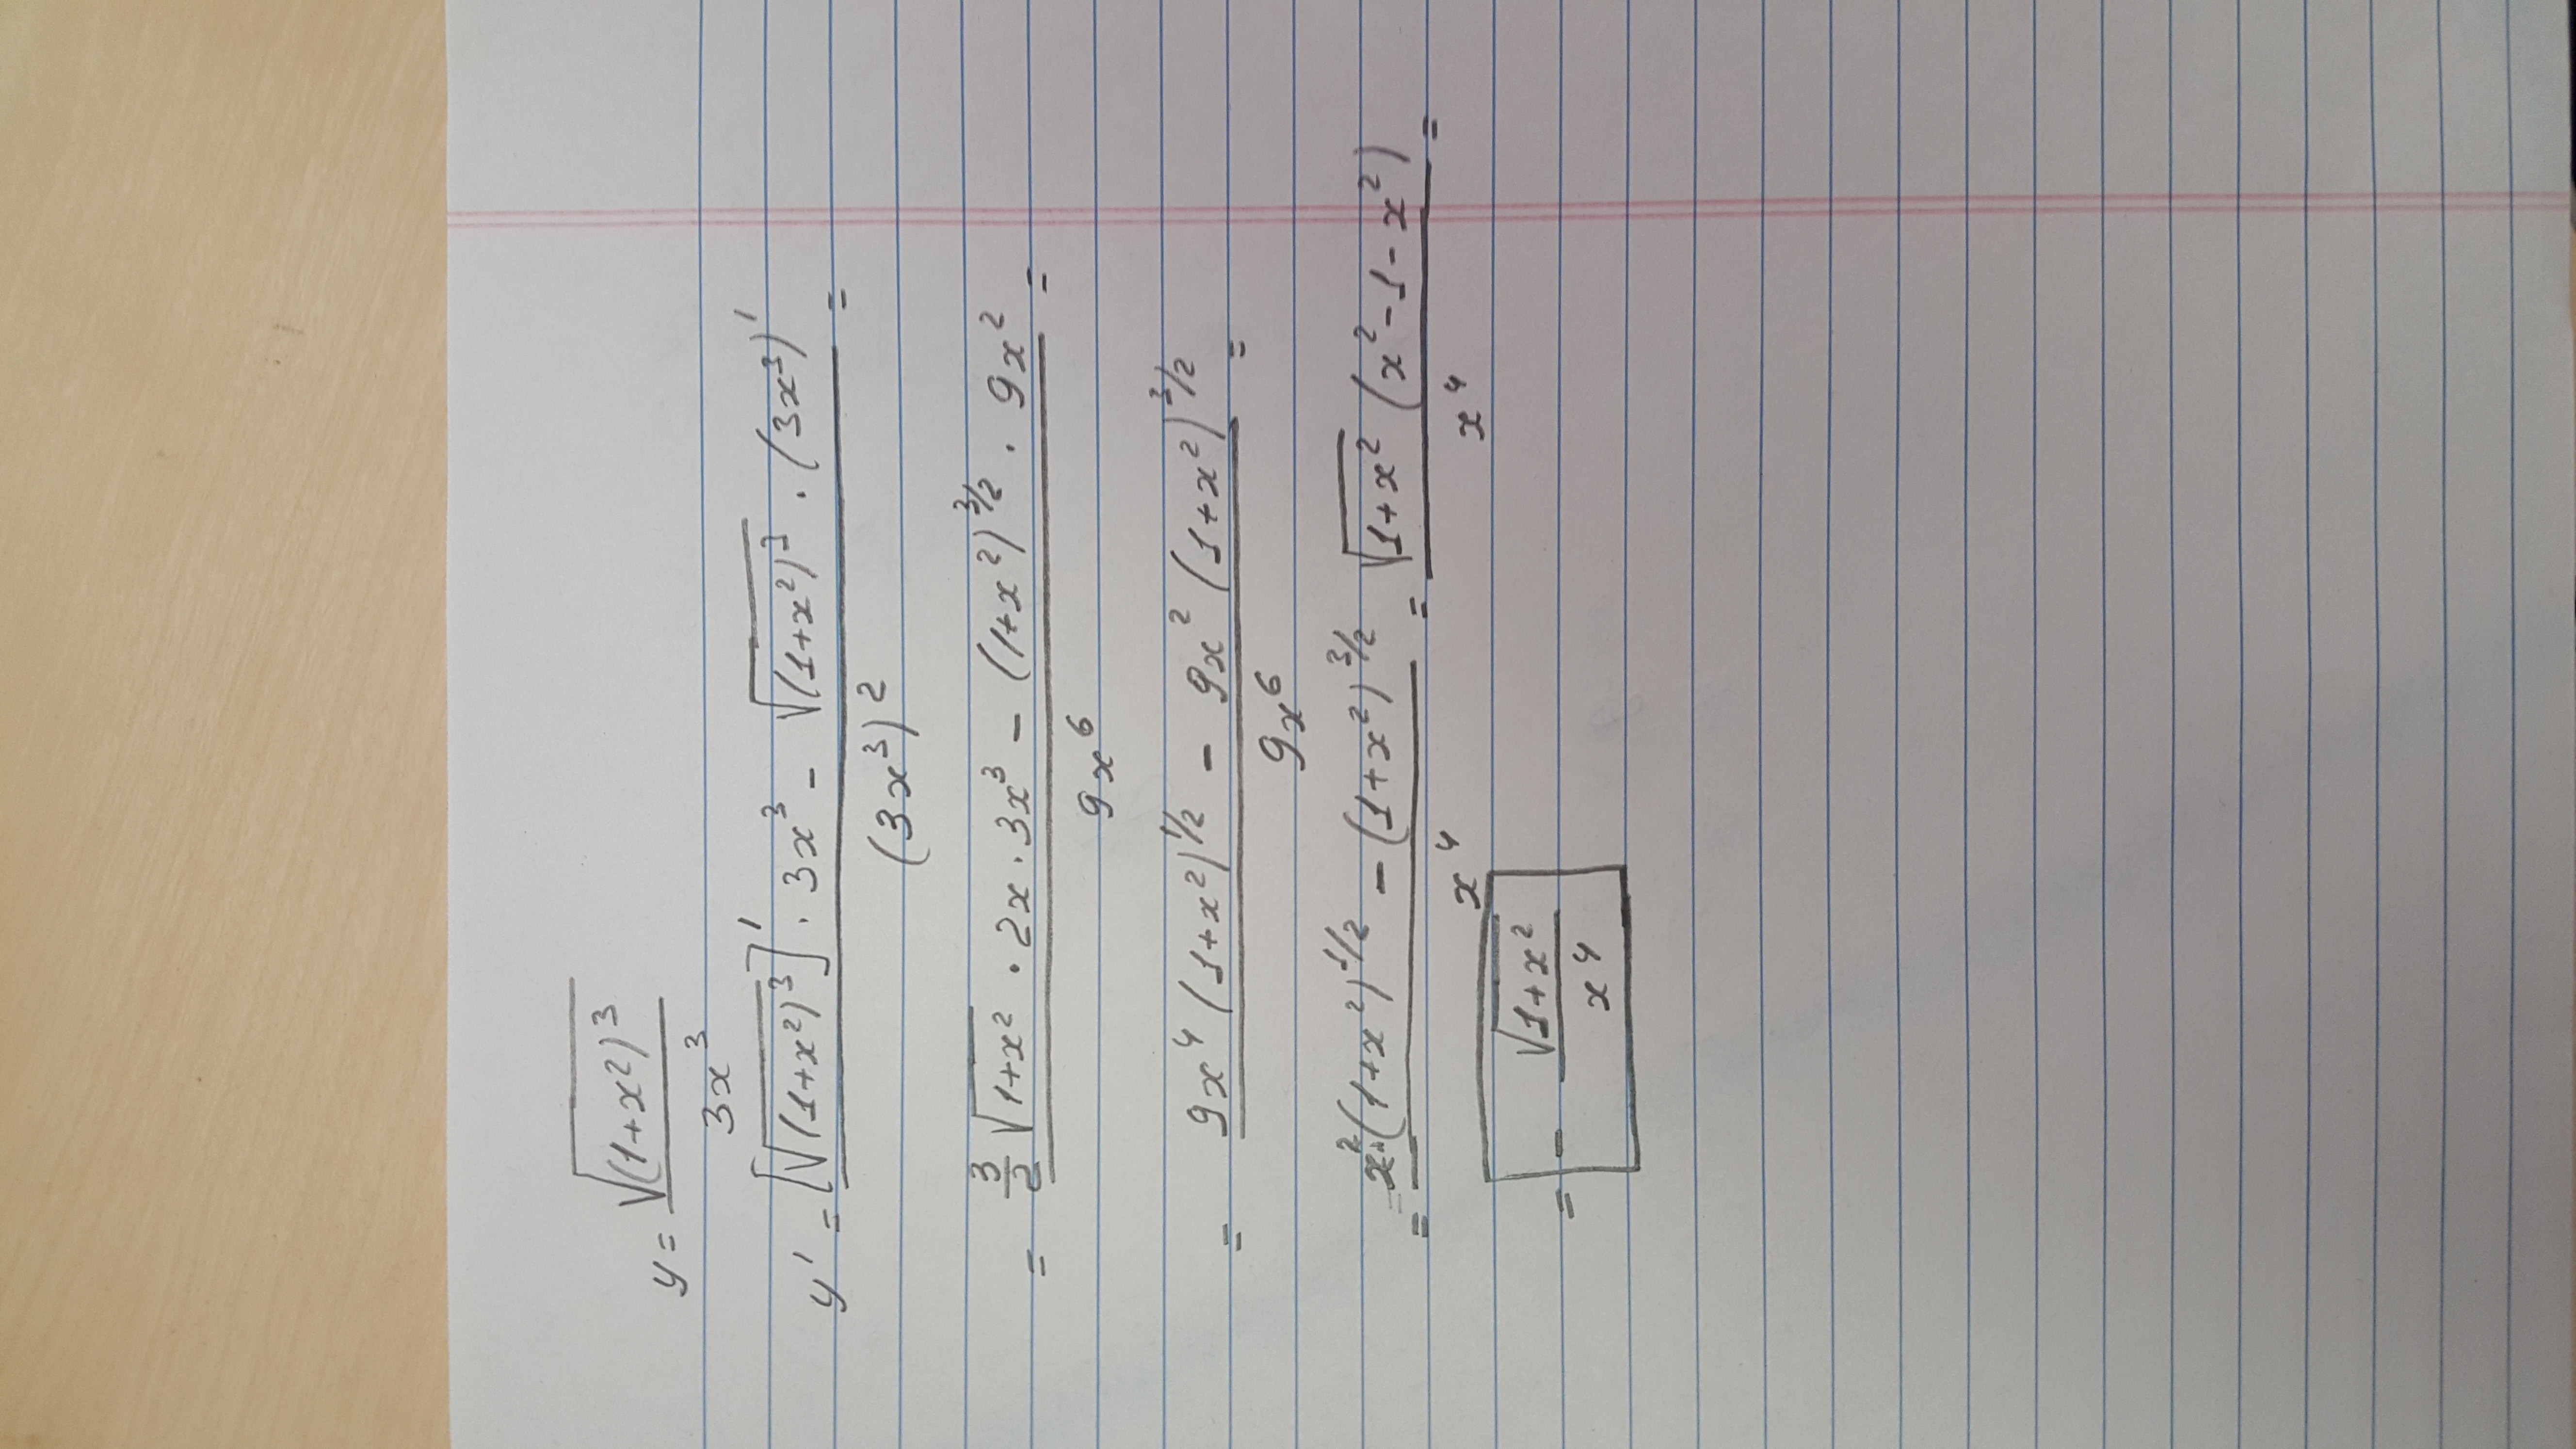 y = √((1+x²)³) / 3x³
y' = [√((1+x²)³)]' · 3x³ - √((1+x²)³) · (3x³)' / (3x³)² =
= 3/2 √(1+x²) · 2x · 3x³ - (1+x²)^(3/2) · 9x² / 9x⁶ =
= 9x⁴(1+x²)^(1/2) - 9x²(1+x²)^(3/2) / 9x⁶ =
= x²·(1+x²)^(1/2) - (1+x²)^(3/2) / x⁴ = √(1+x²) (x²-1-x²) / x⁴ =
= - √(1+x²) / x⁴